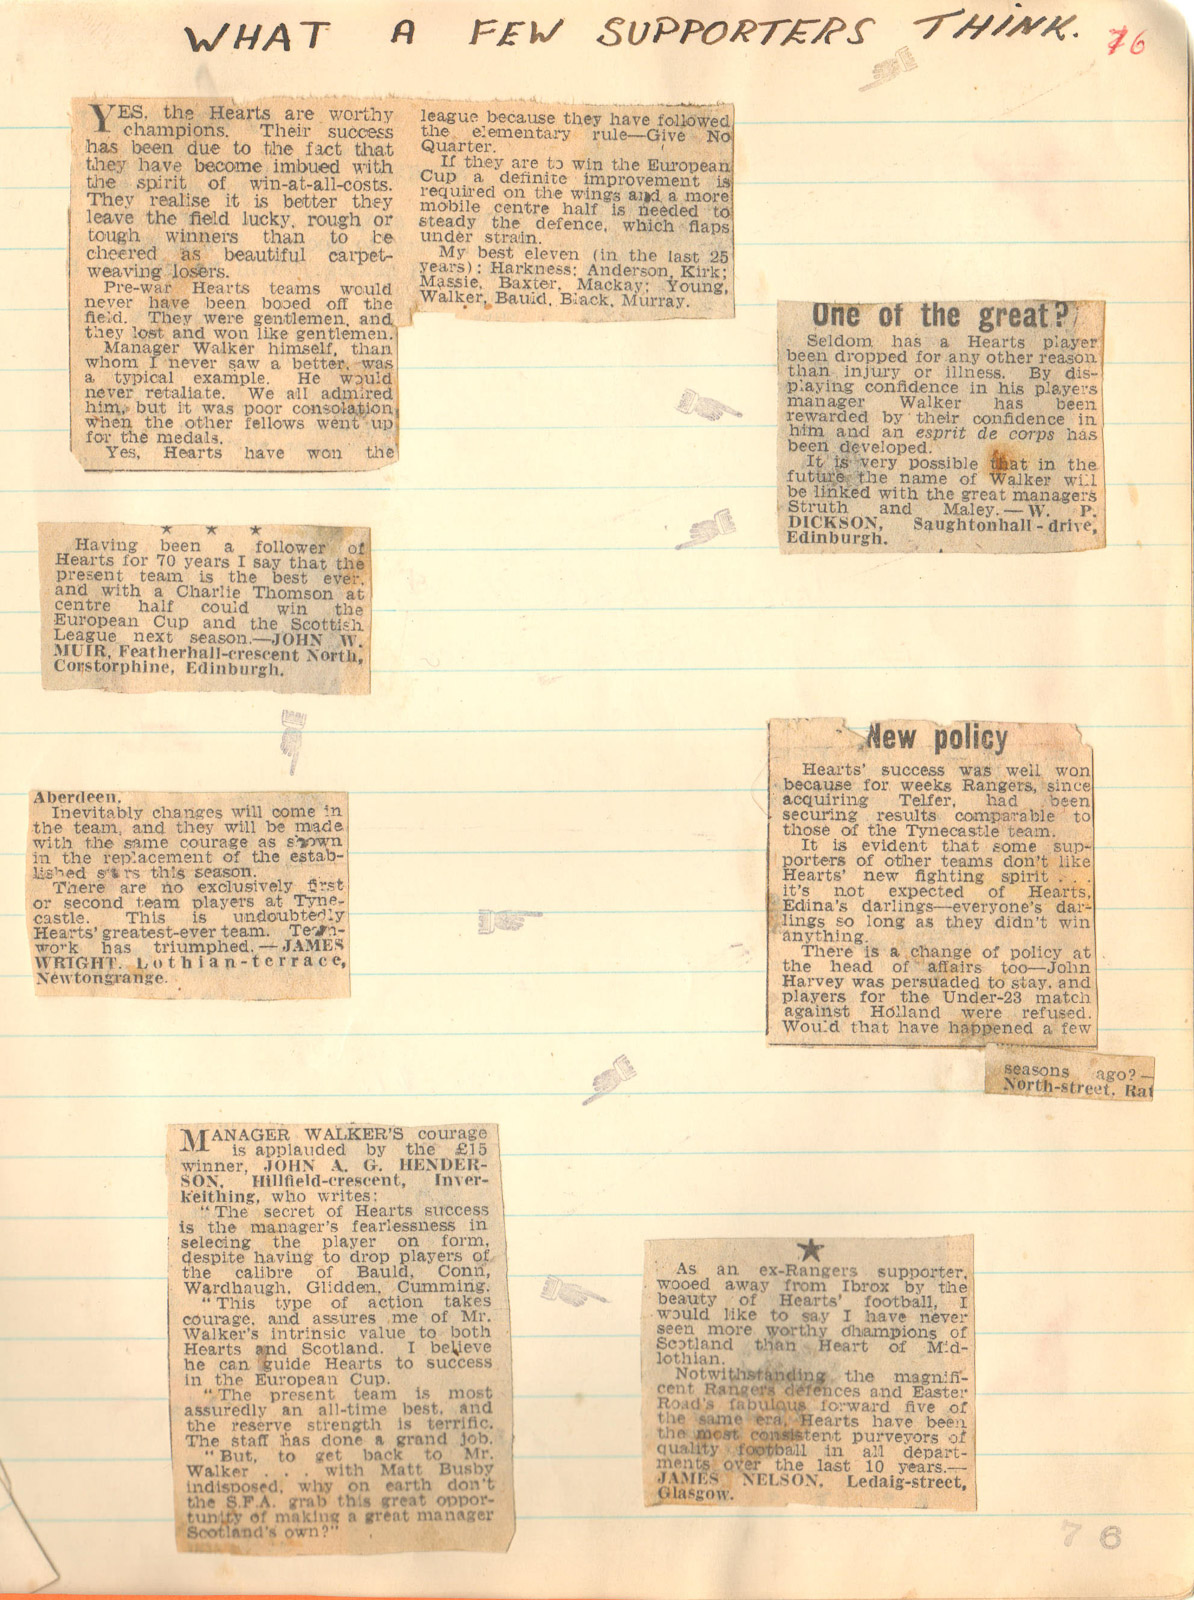 WHAT A FEW SUPPORTERS THINK.
76
YES, the Hearts are worthy
champions. Their success
has been due to the fact that
they have become imbued with
the spirit of win-at-all-costs.
They realise it is better they
leave the field lucky, rough or
tough winners than to be
cheered as beautiful carpet-
weaving losers.
Pre-war Hearts teams would
never have been booed off the
field. They were gentlemen, and
they lost and won like gentlemen.
Manager Walker himself, than
whom I never saw a better, was
a typical example. He would
never retaliate. We all admired
him, but it was poor consolation
when the other fellows went up
for the medals.
Yes, Hearts have won the
league because they have followed
the elementary rule—Give No
Quarter.
If they are to win the European
Cup a definite improvement is
required on the wings and a more
mobile centre half is needed to
steady the defence, which flaps
under strain.
My best eleven (in the last 25
years): Harkness; Anderson, Kirk;
Massie, Baxter, Mackay; Young,
Walker, Bauld, Black, Murray.
One of the great?
Seldom has a Hearts player
been dropped for any other reason
than injury or illness. By dis-
playing confidence in his players
manager Walker has been
rewarded by their confidence in
him and an esprit de corps has
been developed.
It is very possible that in the
future the name of Walker will
be linked with the great managers
Struth and Maley.—W. P.
DICKSON, Saughtonhall-drive,
Edinburgh.
★ ★ ★
Having been a follower of
Hearts for 70 years I say that the
present team is the best ever,
and with a Charlie Thomson at
centre half could win the
European Cup and the Scottish
League next season.—JOHN W.
MUIR, Featherhall-crescent North,
Corstorphine, Edinburgh.
Aberdeen.
Inevitably changes will come in
the team, and they will be made
with the same courage as shown
in the replacement of the estab-
lished stars this season.
There are no exclusively first
or second team players at Tyne-
castle. This is undoubtedly
Hearts' greatest-ever team. Team-
work has triumphed.—JAMES
WRIGHT, Lothian-terrace,
Newtongrange.
New policy
Hearts' success was well won
because for weeks Rangers, since
acquiring Telfer, had been
securing results comparable to
those of the Tynecastle team.
It is evident that some sup-
porters of other teams don't like
Hearts' new fighting spirit . . .
it's not expected of Hearts,
Edina's darlings—everyone's dar-
lings so long as they didn't win
anything.
There is a change of policy at
the head of affairs too—John
Harvey was persuaded to stay, and
players for the Under-23 match
against Holland were refused.
Would that have happened a few
seasons ago?—
North-street, Rat
MANAGER WALKER'S courage
is applauded by the £15
winner, JOHN A. G. HENDER-
SON, Hillfield-crescent, Inver-
keithing, who writes:
"The secret of Hearts success
is the manager's fearlessness in
selecing the player on form,
despite having to drop players of
the calibre of Bauld, Conn,
Wardhaugh, Glidden, Cumming.
"This type of action takes
courage, and assures me of Mr.
Walker's intrinsic value to both
Hearts and Scotland. I believe
he can guide Hearts to success
in the European Cup.
"The present team is most
assuredly an all-time best, and
the reserve strength is terrific.
The staff has done a grand job.
"But, to get back to Mr.
Walker . . . with Matt Busby
indisposed, why on earth don't
the S.F.A. grab this great oppor-
tunity of making a great manager
Scotland's own?"
★
As an ex-Rangers supporter,
wooed away from Ibrox by the
beauty of Hearts' football, I
would like to say I have never
seen more worthy champions of
Scotland than Heart of Mid-
lothian.
Notwithstanding the magnifi-
cent Rangers defences and Easter
Road's fabulous forward five of
the same era, Hearts have been
the most consistent purveyors of
quality football in all depart-
ments over the last 10 years.—
JAMES NELSON, Ledaig-street,
Glasgow.
76